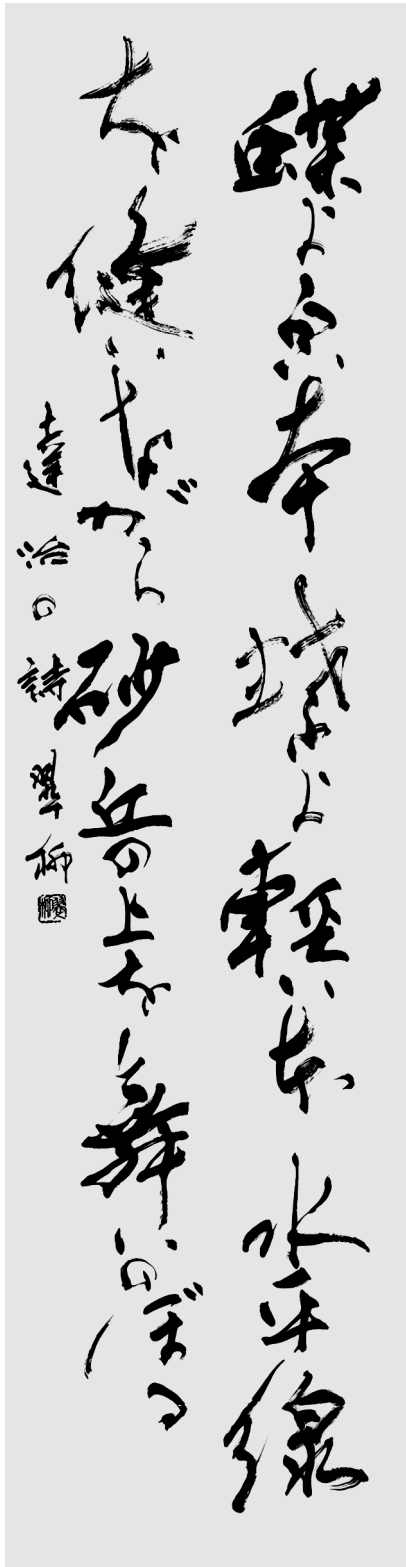 蝶よ白い本 蝶よ軽い本 水平線
を縫いながら砂丘の上を舞いのぼる
達治の詩 翠柳